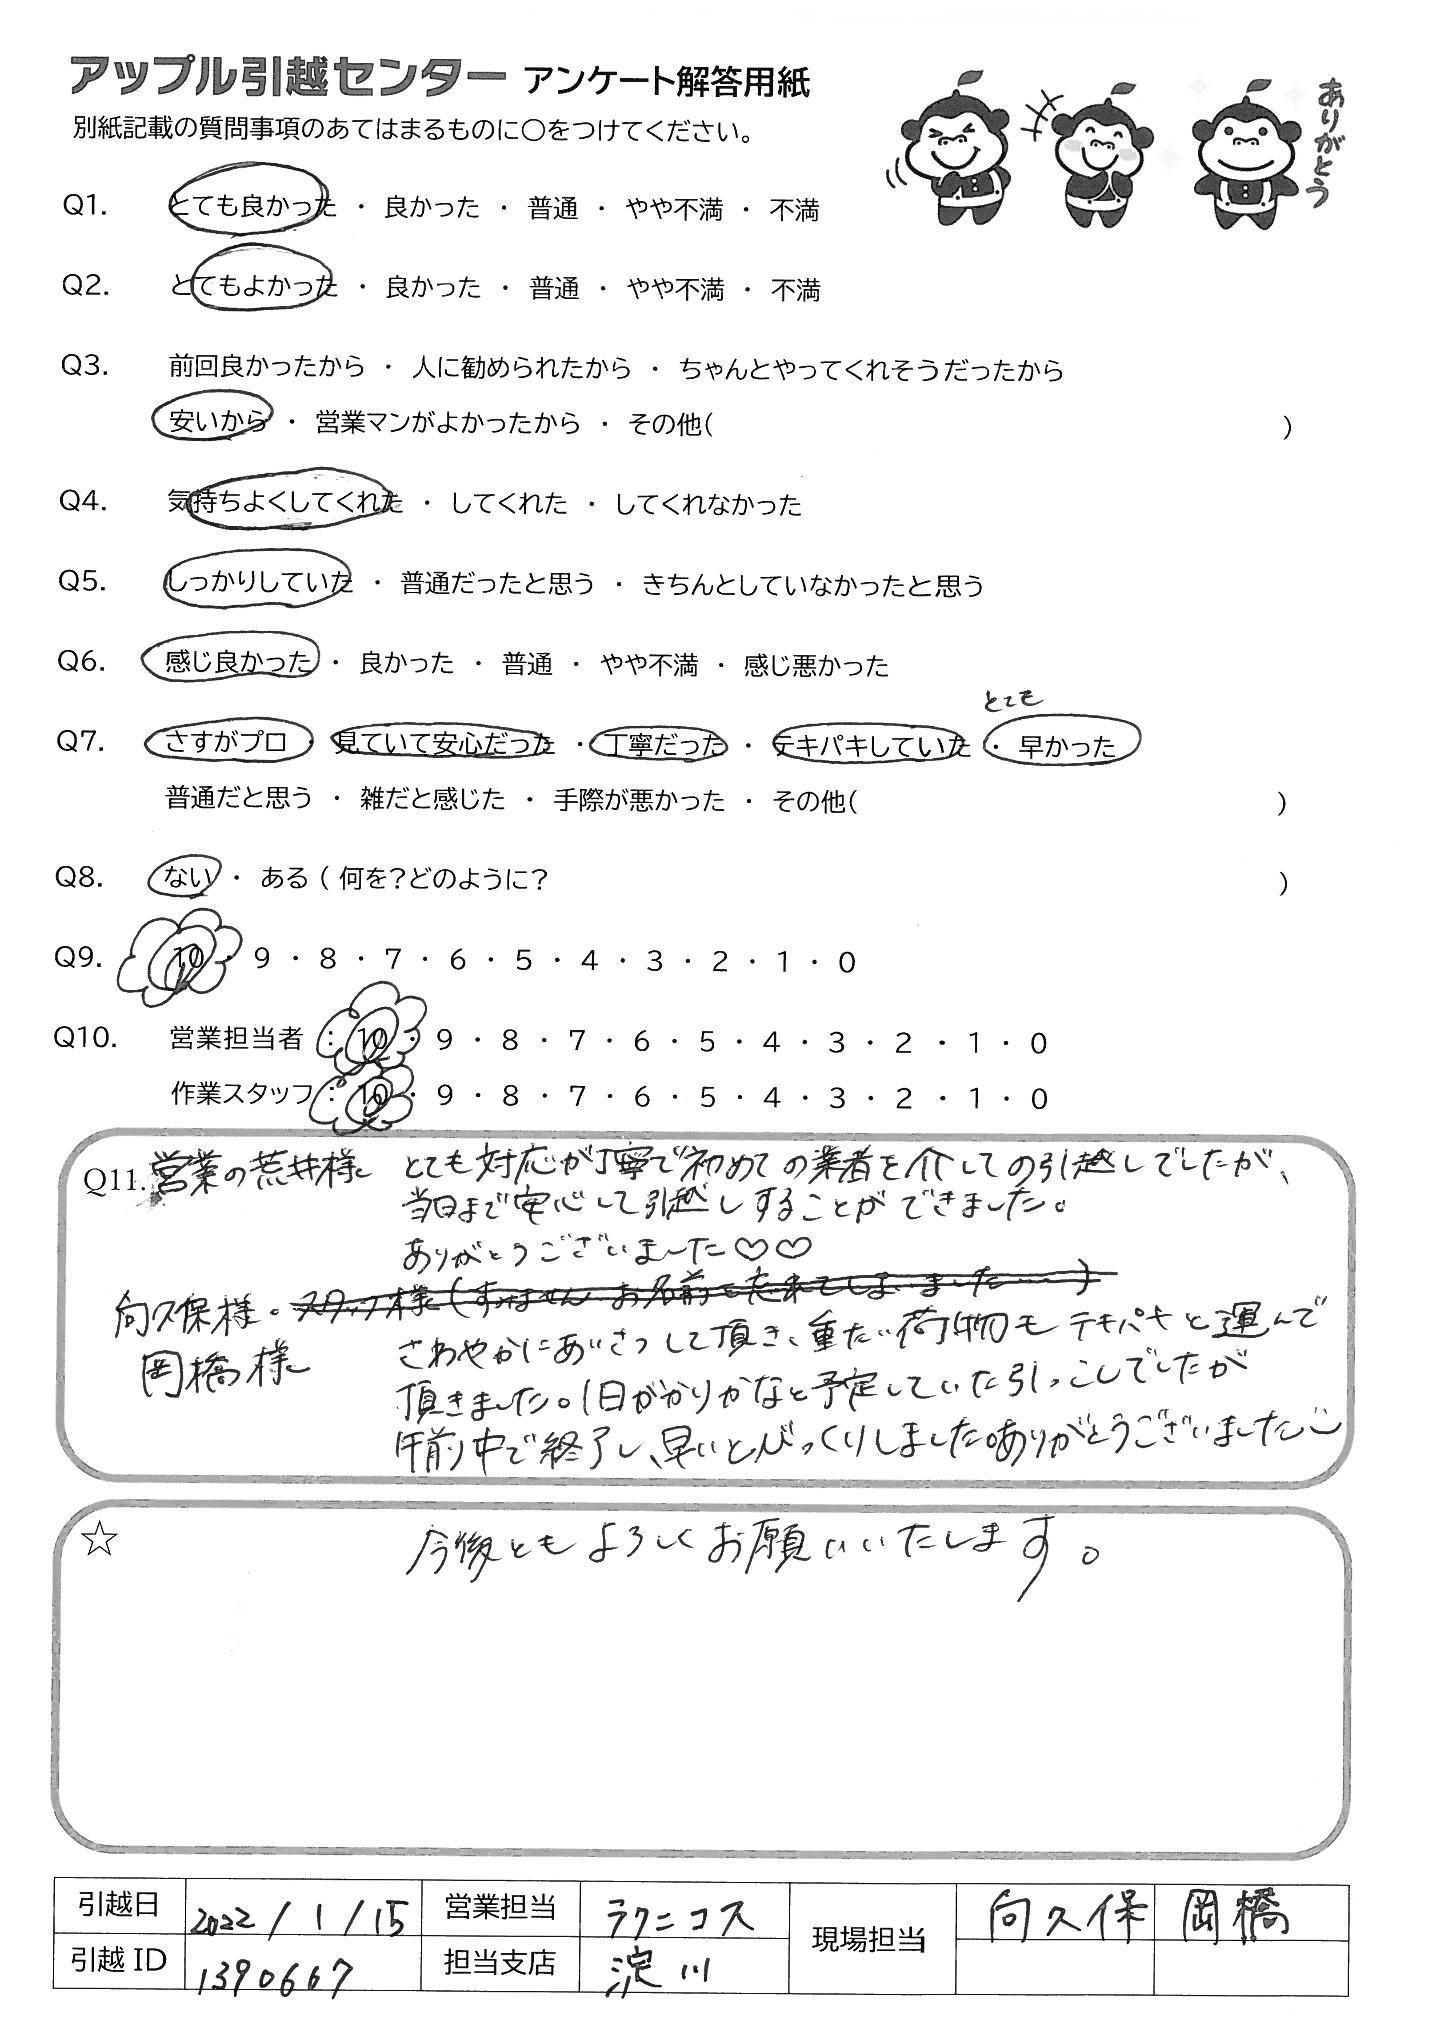 アップル引越センター アンケート解答用紙
別紙記載の質問事項のあてはまるものに〇をつけてください。
ありがとう
Q1. とても良かった ・ 良かった ・ 普通 ・ やや不満 ・ 不満
Q2. とてもよかった ・ 良かった ・ 普通 ・ やや不満 ・ 不満
Q3. 前回良かったから ・ 人に勧められたから ・ ちゃんとやってくれそうだったから
安いから ・ 営業マンがよかったから ・ その他( )
Q4. 気持ちよくしてくれた ・ してくれた ・ してくれなかった
Q5. しっかりしていた ・ 普通だったと思う ・ きちんとしていなかったと思う
Q6. 感じ良かった ・ 良かった ・ 普通 ・ やや不満 ・ 感じ悪かった
とても
Q7. さすがプロ ・ 見ていて安心だった ・ 丁寧だった ・ テキパキしていた ・ 早かった
普通だと思う ・ 雑だと感じた ・ 手際が悪かった ・ その他( )
Q8. ない ・ ある ( 何を?どのように? )
Q9. 10 ・ 9 ・ 8 ・ 7 ・ 6 ・ 5 ・ 4 ・ 3 ・ 2 ・ 1 ・ 0
Q10. 営業担当者 : 10 ・ 9 ・ 8 ・ 7 ・ 6 ・ 5 ・ 4 ・ 3 ・ 2 ・ 1 ・ 0
作業スタッフ : 10 ・ 9 ・ 8 ・ 7 ・ 6 ・ 5 ・ 4 ・ 3 ・ 2 ・ 1 ・ 0
Q11. 営業の荒井様 とても対応が丁寧で初めての業者を介しての引越しでしたが、
当日まで安心して引越しすることができました。
ありがとうございました♡♡
向久保様・スタッフ様(すみません お名前を忘れてしまいました……)
岡橋様 さわやかにあいさつして頂き、重たい荷物もテキパキと運んで
頂きました。1日がかりかなと予定していた引っこしでしたが
午前中で終了し、早いとびっくりしました。ありがとうございました
☆ 今後ともよろしくお願いいたします。
引越日 2022/1/15 営業担当 ラクニコス 現場担当 向久保 岡橋
引越ID 1390667 担当支店 淀川